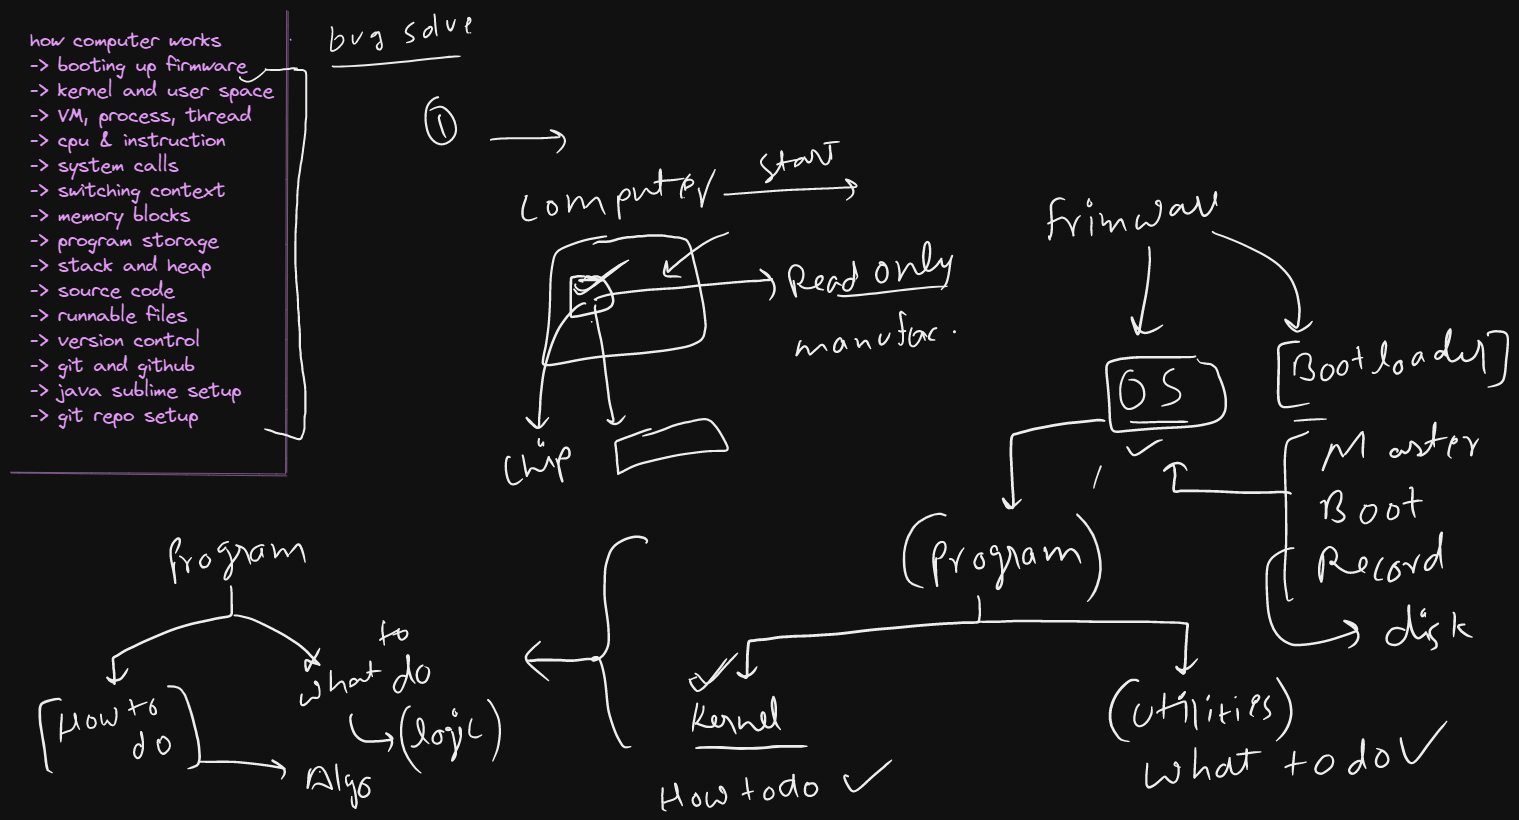 how computer works
-> booting up firmware
-> kernel and user space
-> VM, process, thread
-> cpu & instruction
-> system calls
-> switching context
-> memory blocks
-> program storage
-> stack and heap
-> source code
-> runnable files
-> version control
-> git and github
-> java sublime setup
-> git repo setup
bug solve
1
Computer
start
Read only
manufac.
chip
frimware
OS
[Bootloader]
Master
Boot
Record
disk
(Program)
Kernel
How to do
(utilities)
what to do
Program
[How to
do]
Algo
to
what do
(logic)